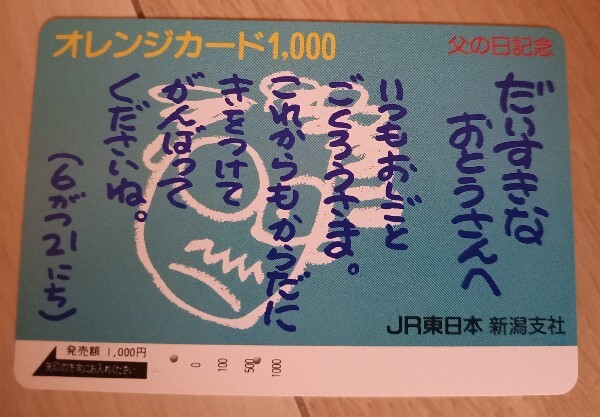 オレンジカード1,000
父の日記念
だいすきな
おとうさんへ
いつもおしごと
ごくろうさま。
これからもからだに
きをつけて
がんばって
くださいね。
(6がつ21にち)
JR東日本 新潟支社
発売額 1,000円
矢印の方向にお入れください
0
100
500
1000